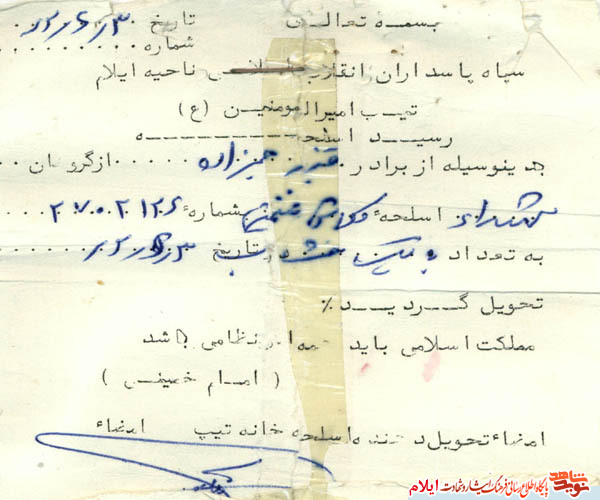 بسمه تعالی تاریخ
شماره
سپاه پاسداران انقلاب اسلامی ناحیه ایلام
تیپ امیرالمومنین (ع)
رسید اسلحه
بدینوسیله از برادر قنبر حمیدزاده از گروهان
شهداء اسلحهٔ کلاش بشمارهٔ ۲۷۰۲۱۲۶
به تعداد یک تاریخ
تحویل گردید٪
مملکت اسلامی باید همه اش نظامی باشد
( امام خمینی )
امضاء تحویل دهنده اسلحه خانه تیپ امضاء
نوید شاهد پایگاه اطلاع رسانی فرهنگ ایثار و شهادت ایلام